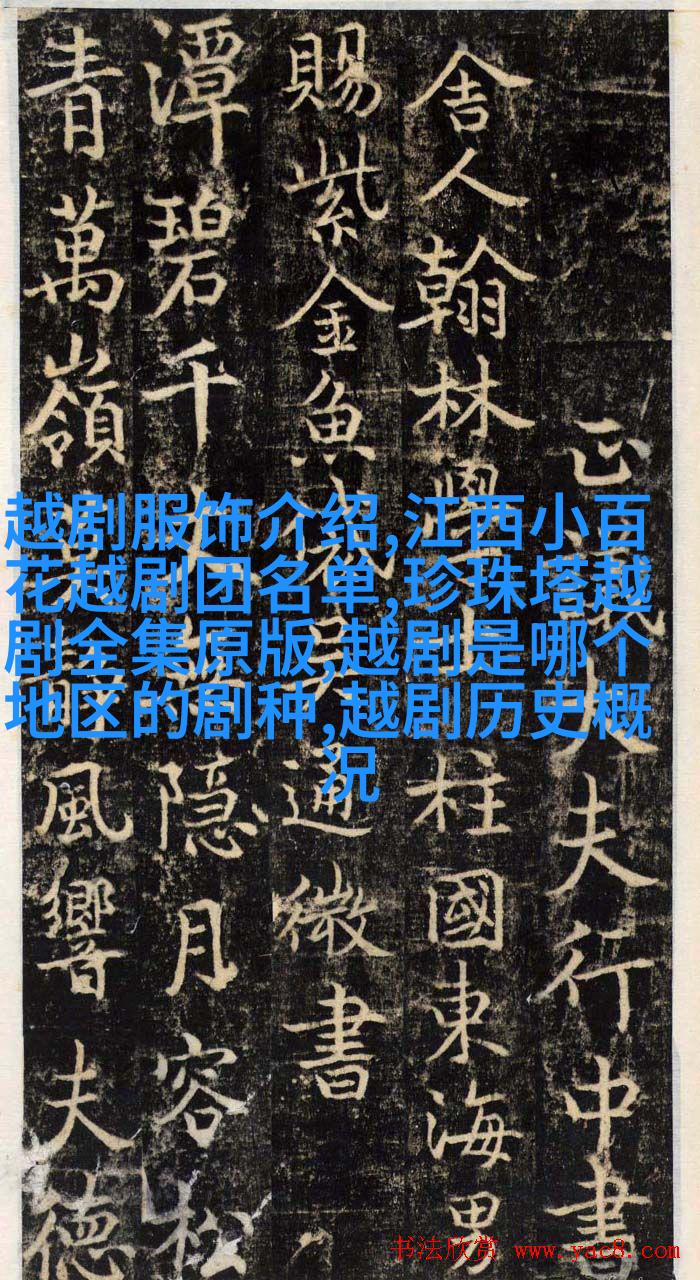 正議大夫行中書
舎人翰林學士上柱國東海男
賜紫金魚袋吴通微書
潭碧千隐月容松
青萬嶺風響夫德
越剧服饰介绍,江西小百
花越剧团名单,珍珠塔越
剧全集原版,越剧是哪个
地区的剧种,越剧历史概
况
书法欣赏 www.yac8.com